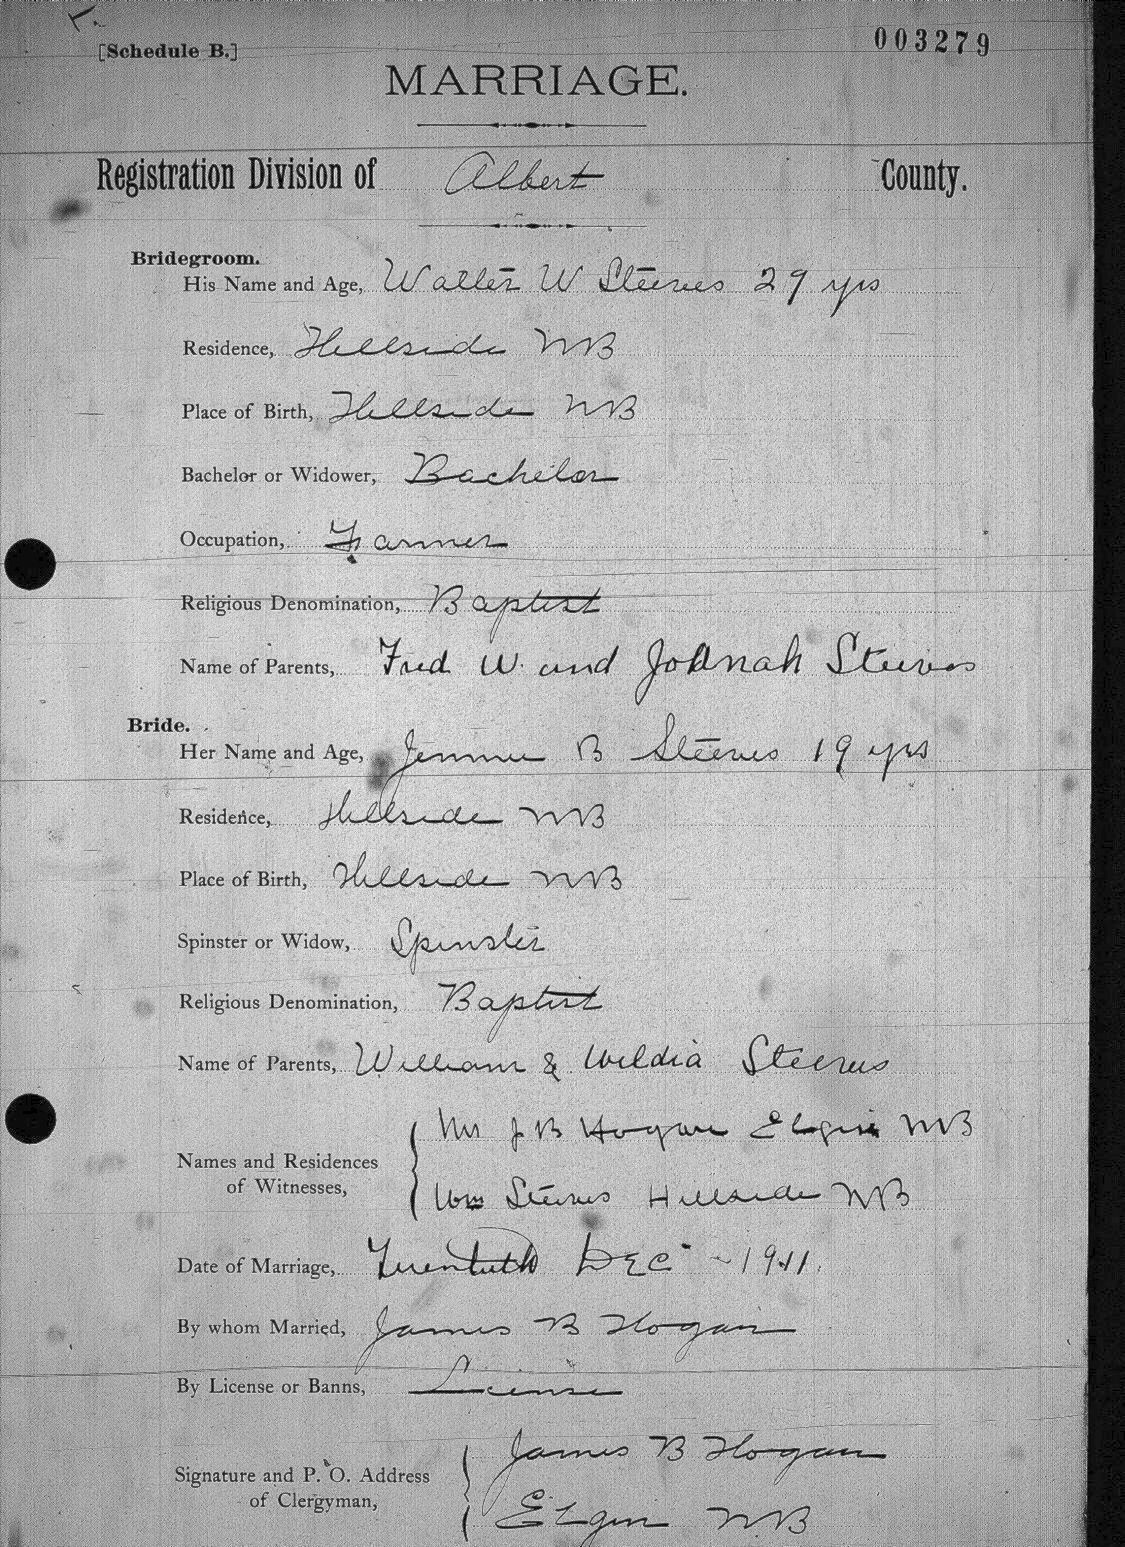 [Schedule B.]
003279
MARRIAGE.
Registration Division of Albert County.
Bridegroom.
His Name and Age, Walter W Steeves 29 yrs
Residence, Hillside NB
Place of Birth, Hillside NB
Bachelor or Widower, Bachelor
Occupation, Farmer
Religious Denomination, Baptist
Name of Parents, Fred W. and Johnah Steeves
Bride.
Her Name and Age, Jennie B Steeves 19 yrs
Residence, Hillside NB
Place of Birth, Hillside NB
Spinster or Widow, Spinster
Religious Denomination, Baptist
Name of Parents, William & Wildia Steeves
Names and Residences
of Witnesses,
Mrs J B Hogan Elgin NB
Wm Steeves Hillside NB
Date of Marriage, Twentieth Dec - 1911.
By whom Married, James B Hogan
By License or Banns, License
Signature and P. O. Address
of Clergyman,
James B Hogan
Elgin NB